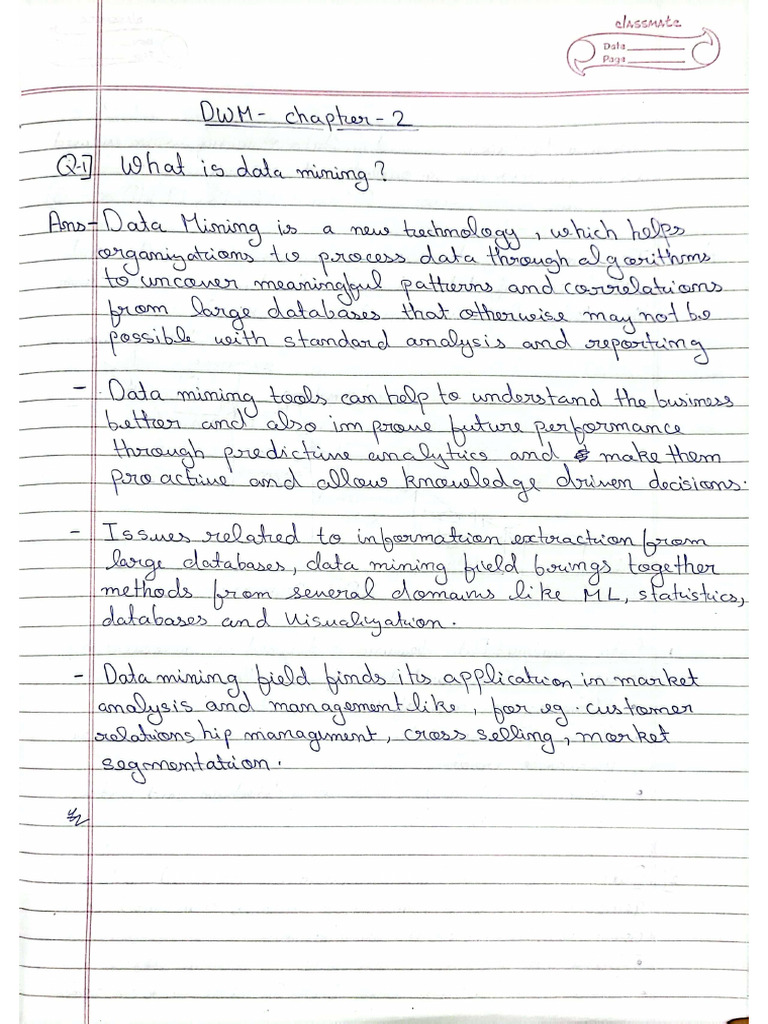 classmate
Date
Page
DWM- chapter-2
Q-1] What is data mining?
Ans- Data Mining is a new technology, which helps
organizations to process data through algorithms
to uncover meaningful patterns and correlations
from large databases that otherwise may not be
possible with standard analysis and reporting
- Data mining tools can help to understand the business
better and also improve future performance
through predictive analytics and make them
proactive and allow knowledge driven decisions.
- Issues related to information extraction from
large databases, data mining field brings together
methods from several domains like ML, statistics,
databases and Visualization.
- Data mining field finds its application in market
analysis and management like, for eg. customer
relationship management, cross selling, market
segmentation.